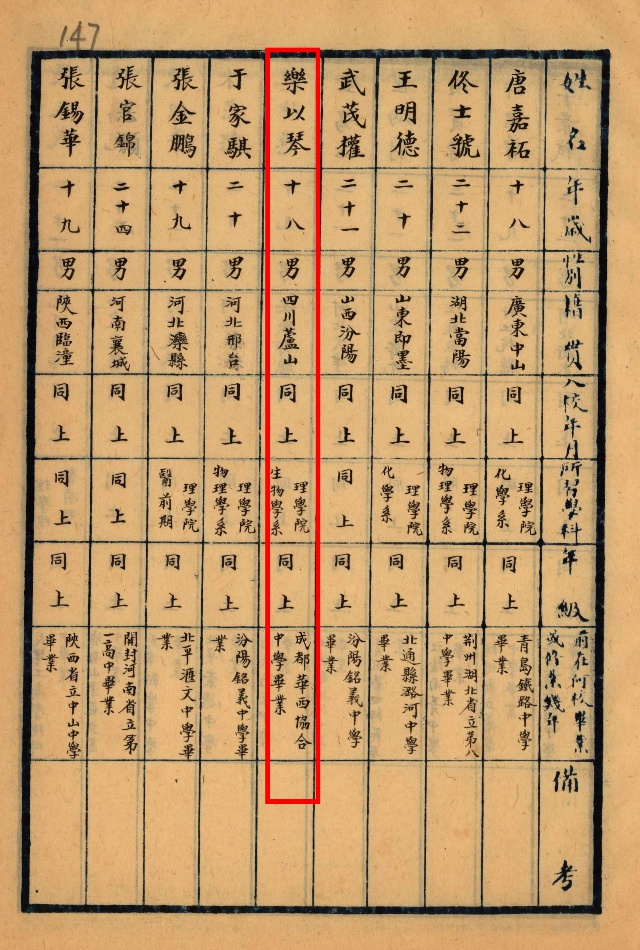 147
姓名
年歲
性別
籍貫
入校年月
所習學科
年級
前在何校畢業
或修業幾年
備考
唐嘉祏
十八
男
廣東中山
同上
理學院
化學系
同上
青島鐵路中學
畢業
佟士號
二十二
男
湖北當陽
同上
理學院
物理學系
同上
荆州湖北省立第八
中學畢業
王明德
二十
男
山東即墨
同上
理學院
化學系
同上
北通縣潞河中學
畢業
武茂權
二十一
男
山西汾陽
同上
同上
同上
汾陽銘義中學
畢業
樂以琴
十八
男
四川蘆山
同上
理學院
生物學系
同上
成都華西協合
中學畢業
于家騏
二十
男
河北邢台
同上
理學院
物理學系
同上
汾陽銘義中學畢
業
張金鵬
十九
男
河北灤縣
同上
理學院
醫前期
同上
北平滙文中學畢
業
張官錦
二十四
男
河南襄城
同上
同上
同上
開封河南省立第
一高中畢業
張錫華
十九
男
陝西臨潼
同上
同上
同上
陝西省立中山中學
畢業